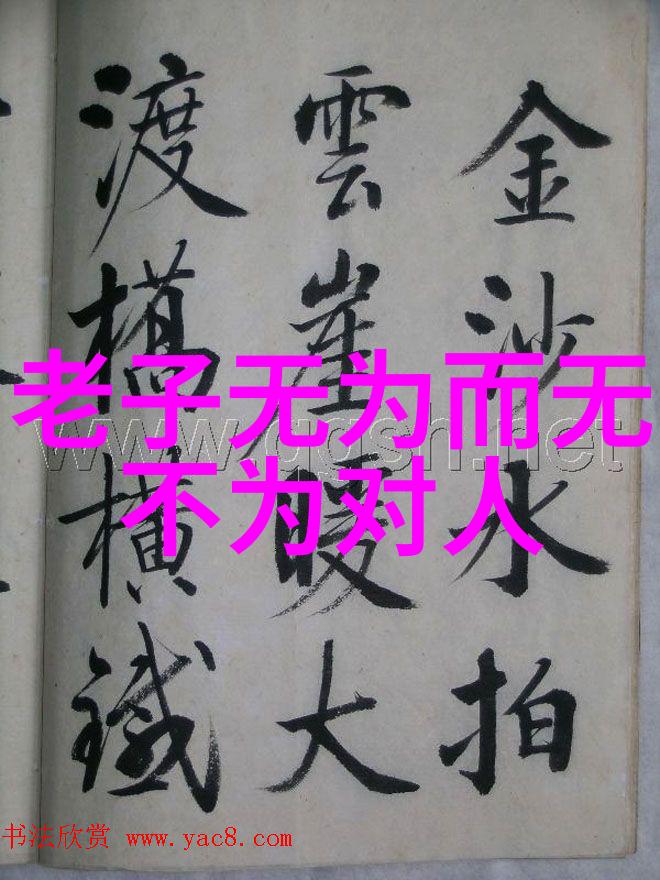 金沙水拍
雲崖暖大
渡橋橫鐵
老子无为而无
不为对人
www.gqsh.net
书法欣赏 www.yac8.com